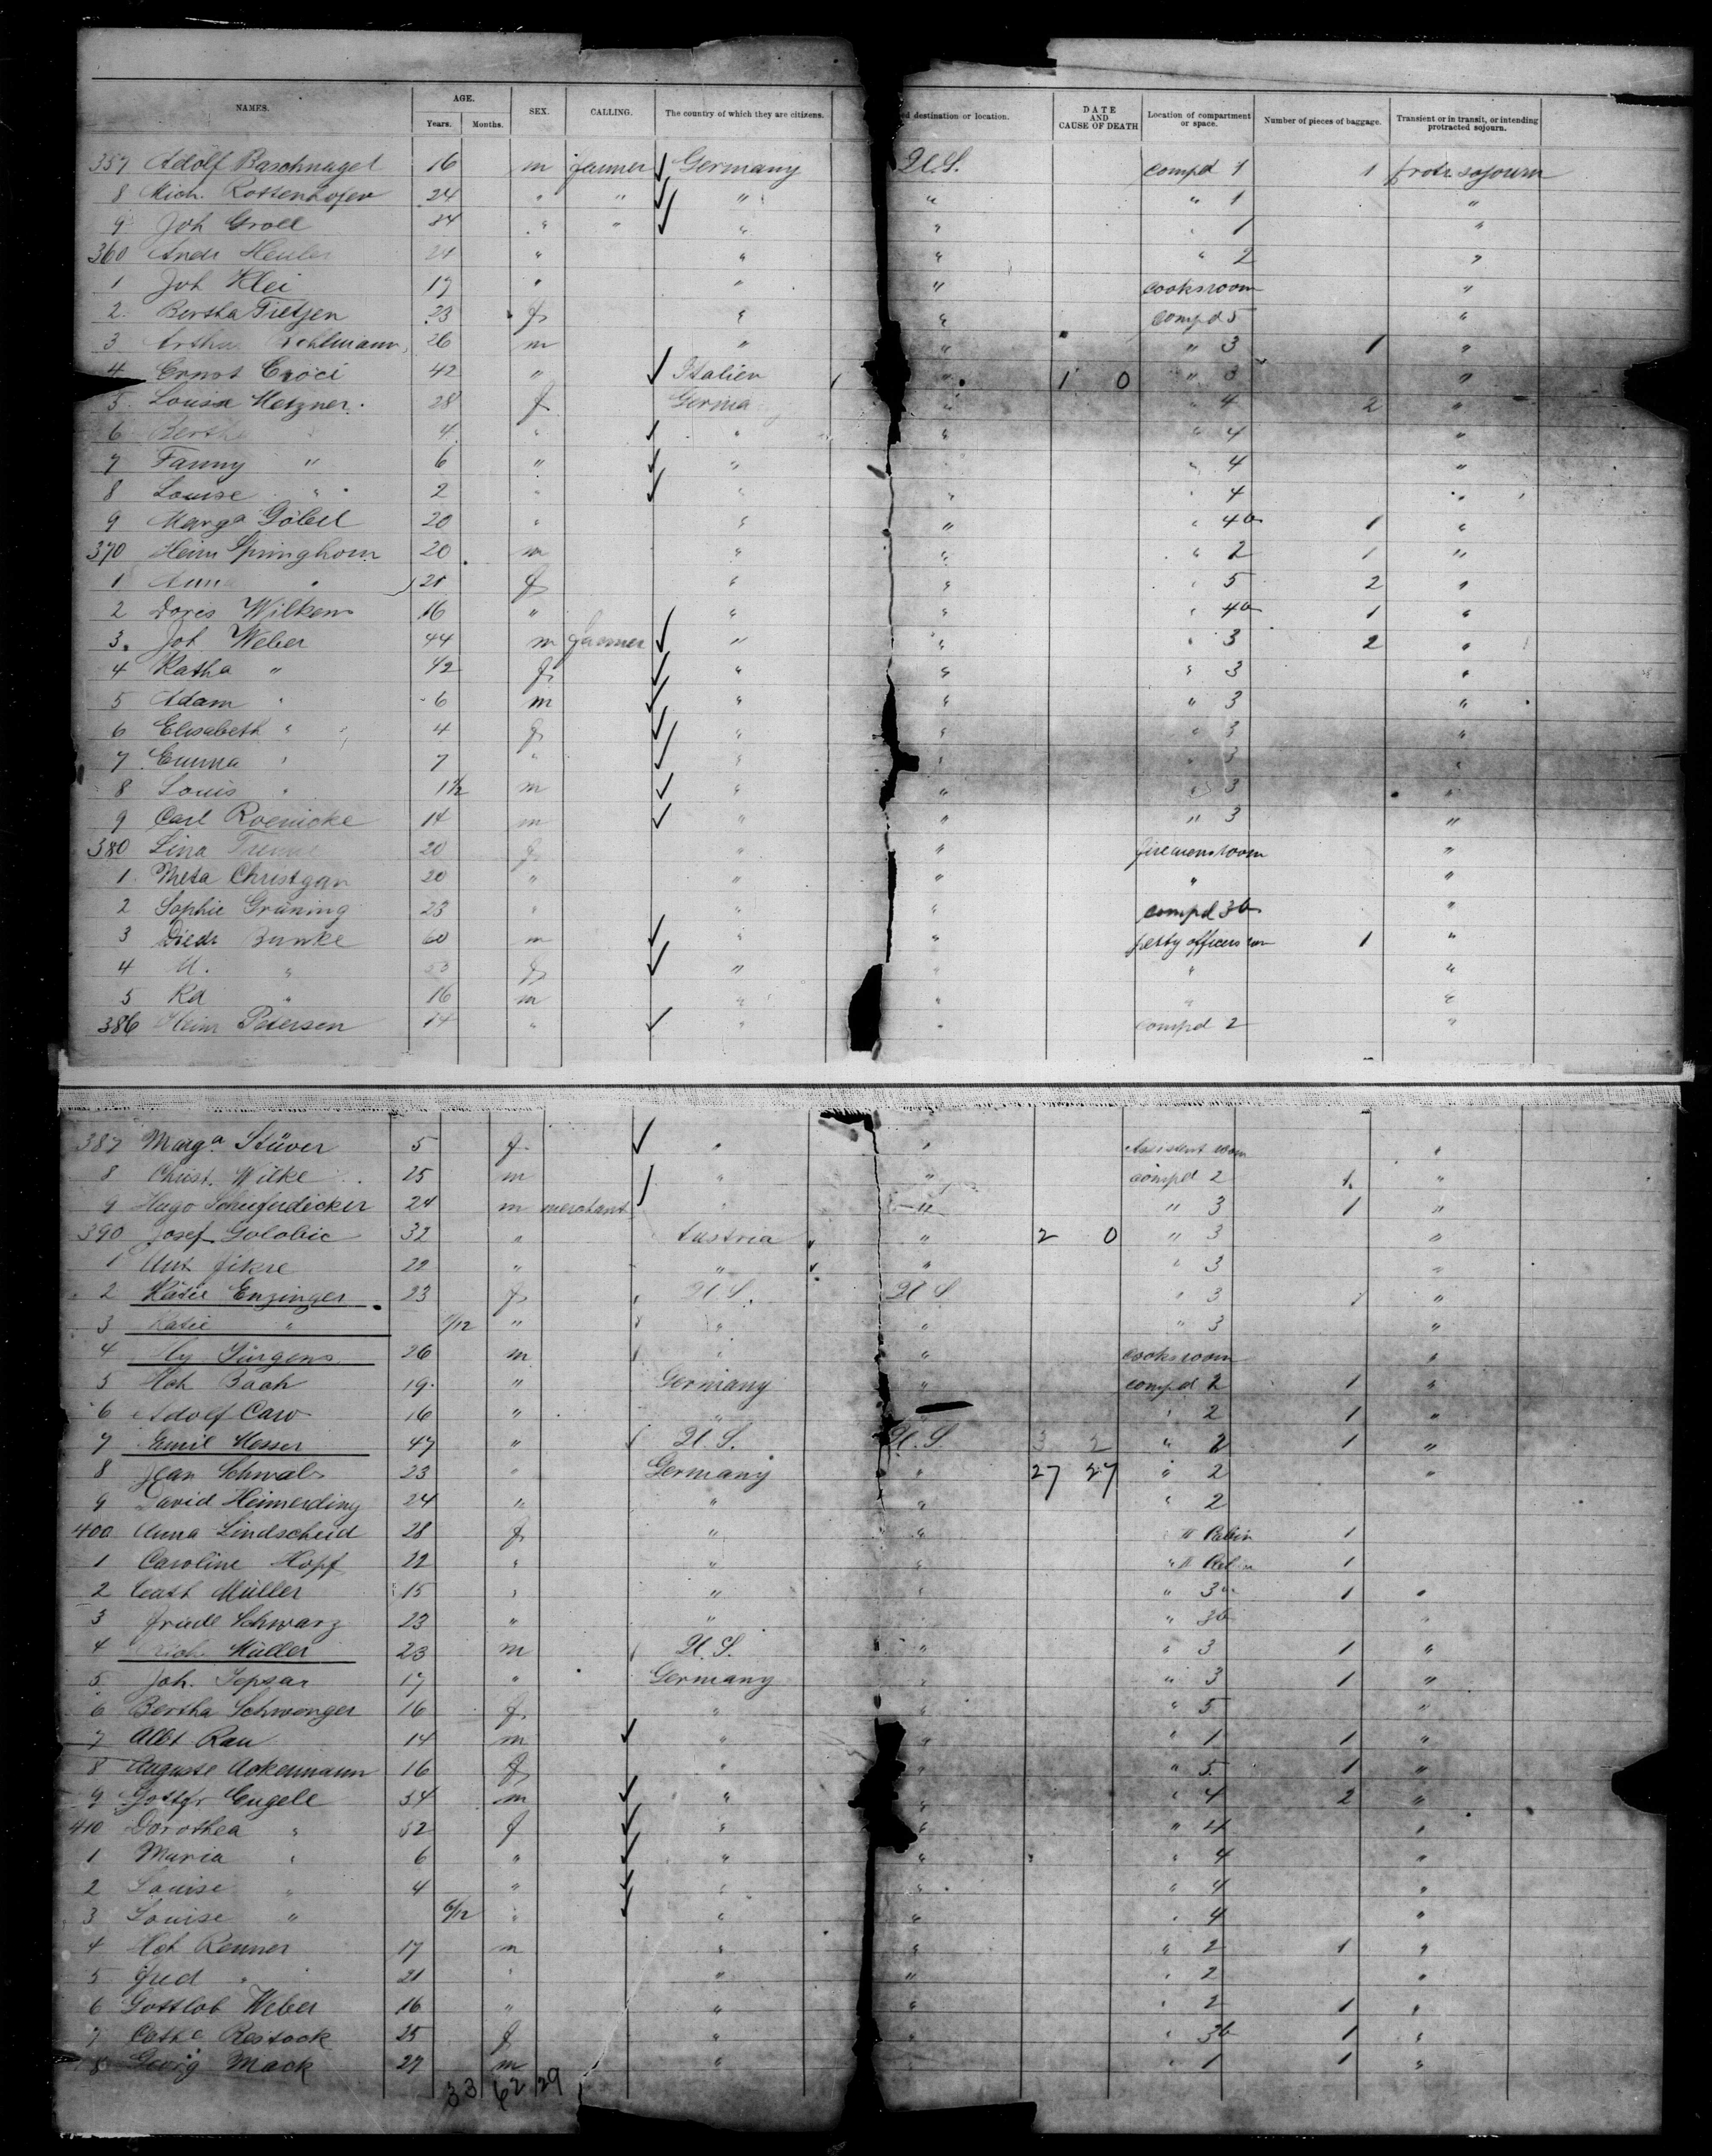 NAMES. AGE. Years. Months. SEX. CALLING. The country of which they are citizens. destination or location. DATE AND CAUSE OF DEATH Location of compartment or space. Number of pieces of baggage. Transient or in transit, or intending protracted sojourn.
357 Adolf Baschnagel 16 m farmer Germany U.S. compd 1 1 protr. sojourn
8 Mich. Rottenhofer 24 " " " " " 1 "
9 Joh Groll 34 " " " " " 1 "
360 Andr Heuler 24 " " " " 2 "
1 Joh Klei 17 " " " cooksroom "
2 Bertha Tietjen 23 f " " compd 5 "
3 Arthur 26 m " " " 3 1 "
4 Ernst Croci 42 " Italien " 1 0 " 3 "
5 Louisa Metzner 28 f Germa " " 4 2 "
6 Bertha " 4 " " " " 4 "
7 Fanny " 6 " " " 4 "
8 Louise " 2 " " " " 4 "
9 Marga Göbel 20 " " " " 4a 1 "
370 Heinr Springhorn 20 m " " " 2 1 "
1 Anna " 21 f " " " 5 2 "
2 Dores Wilkens 16 " " " " 4a 1 "
3 Joh Weber 44 m farmer " " " 3 2 "
4 Katha " 42 f " " " 3 "
5 Adam " 6 m " " " 3 "
6 Elisabeth " 4 f " " " 3 "
7 Emma " 7 " " " " 3 "
8 Louis " 1½ m " " " 3 "
9 Carl Roenicke 14 m " " " 3 "
380 Lina 20 f " " firemensroom "
1 Meta Christgan 20 " " " " "
2 Sophie Grüning 23 " " " compd 3b "
3 Diedr Bunke 60 m " " petty officers rm 1 "
4 M. " 53 f " " " "
5 Rd " 16 m " " " "
386 Heinr Petersen 14 " " " compd 2 "
387 Marga Stüver 5 f " " Assistent room "
8 Christ. Wilke 25 m " " compd 2 1 "
9 Hugo Schieferdicker 24 m merchant " " " 3 1 "
390 Josef Golobic 32 " Austria " 2 0 " 3 "
1 Ant Jikre 22 " " " " 3 "
2 Käthe Enzinger 23 f U S. U S " 3 "
3 Katie " /12 " " " " 3 "
4 Hy Jürgens 26 m " " cooksroom "
5 Hch Bach 19 " Germany " compd 2 1 "
6 Adolf Caro 16 " " " " 2 1 "
7 Emil Messer 47 " U. S. U. S. 3 2 " 2 1 "
8 Jean Schwab 23 " Germany " 27 27 " 2 "
9 David Heimerding 24 " " " " 2
400 Anna Lindscheid 28 f " " " II Cabin 1
1 Caroline Hopf 22 " " " " II Cabin 1
2 Cath Müller 15 " " " " 3a 1 "
3 Friede Schwarz 23 " " " 3b "
4 Müller 23 m U. S. " " 3 1 "
5 Joh. Sepsar 17 " Germany " " 3 1 "
6 Bertha Schwenger 16 f " " " 5 "
7 Albt Rau 14 m " " " 1 1 "
8 Auguste Ackermann 16 f " " " 5 1 "
9 Gottfr Engele 34 m " " " 4 2 "
410 Dorothea " 32 f " " " 4 "
1 Maria " 6 " " " " 4 "
2 Louise " 4 " " " " 4 "
3 Louise " 6/12 " " " " 4 "
4 Hch Renner 17 m " " " 2 1 "
5 Fred " 21 " " " " 2 "
6 Gottlob Weber 16 " " " " 2 1 "
7 Cathe Restock 25 f " " " 3b 1 "
8 Georg Mack 27 m " " 1 1 "
33 62 29